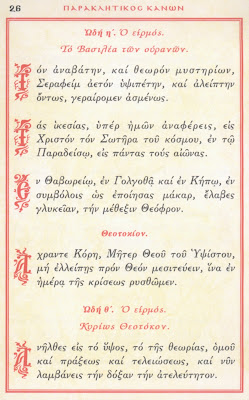 26 ΠΑΡΑΚΛΗΤΙΚΟΣ ΚΑΝΩΝ
Ὠδὴ η΄. Ὁ εἱρμός.
Τὸ Βασιλέα τῶν οὐρανῶν.
Τόν ἀναβάτην, καί θεωρόν μυστηρίων,
Σεραφείμ ἀετόν ὑψιπέτην, καί ἀλείπτην
ὄντως, γεραίρομεν ἀσμένως.
Τάς ἱκεσίας, ὑπέρ ἡμῶν ἀναφέρεις, εἰς
Χριστόν τόν Σωτῆρα τοῦ κόσμου, ἐν τῷ
Παραδείσῳ, εἰς πάντας τούς αἰῶνας.
Ὅν Θαβωρείῳ, ἐν Γολγοθᾷ καί ἐν Κήπῳ, ἐν
συμβόλοις ὡς ἐποίησας μάκαρ, ἔλαβες
γλυκεῖαν, τήν μέθεξιν Θεόφρον.
Θεοτοκίον.
Ἄχραντε Κόρη, Μῆτερ Θεοῦ τοῦ Ὑψίστου,
μή ἐλλείπῃς πρόν Θεόν μεσιτεύειν, ἵνα ἐν
ἡμέρᾳ τῆς κρίσεως ρυσθῶμεν.
Ὠδὴ θ΄. Ὁ εἱρμός.
Κυρίως Θεοτόκον.
Ἀνῆλθες εἰς τό ὕψος, τό τῆς θεωρίας, ὁμοῦ
καί πράξεως καί τελειώσεως, καί νῦν
λαμβάνεις τήν δόξαν τήν ἀτελεύτητον.